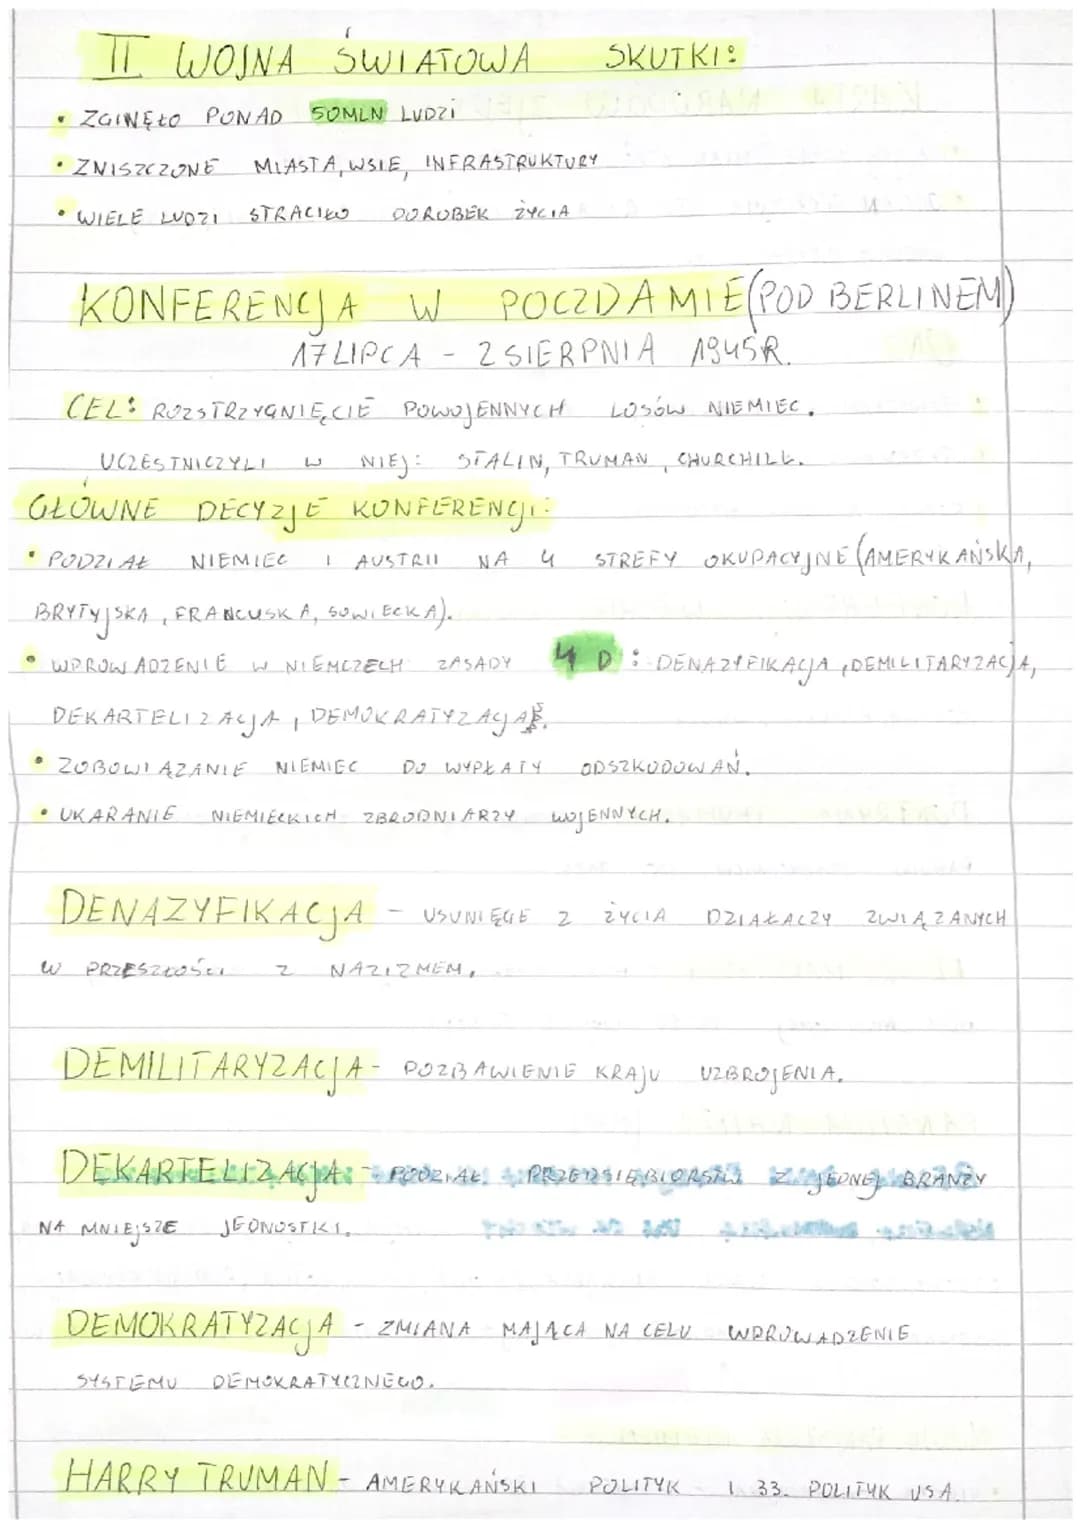 II WOJNA ŚWIATOWA SKUTKI:
• ZGINĘŁO PONAD 50MLN LUDZI
• ZNISZCZONE MIASTA, WSIE, INFRASTRUKTURY
• WIELE LUDZI STRACIŁO DOROBEK ŻYCIA
KONFERENCJA W POCZDAMIE (POD BERLINEM)
17 LIPCA - 2 SIERPNIA 1945R.
CEL: ROZSTRZYGNIĘCIE POWOJENNYCH LOSÓW NIEMIEC.
UCZESTNICZYLI W NIEJ: STALIN, TRUMAN, CHURCHILL.
GŁÓWNE DECYZJE KONFERENCJI:
• PODZIAŁ NIEMIEC I AUSTRII NA 4 STREFY OKUPACYJNE (AMERYKAŃSKA,
BRYTYJSKA, FRANCUSKA, SOWIECKA).
• WPROWADZENIE W NIEMCZECH ZASADY 4 D: DENAZYFIKACJA, DEMILITARYZACJA,
DEKARTELIZACJA, DEMOKRATYZACJA.
• ZOBOWIĄZANIE NIEMIEC DO WYPŁATY ODSZKODOWAŃ.
• UKARANIE NIEMIECKICH ZBRODNIARZY WOJENNYCH.
DENAZYFIKACJA - USUNIĘCIE Z ŻYCIA DZIAŁACZY ZWIĄZANYCH
W PRZESZŁOŚCI Z NAZIZMEM.
DEMILITARYZACJA - POZBAWIENIE KRAJU UZBROJENIA.
DEKARTELIZACJA - PODZIAŁ PRZEDSIĘBIORSTW Z JEDNEJ BRANŻY
NA MNIEJSZE JEDNOSTKI.
DEMOKRATYZACJA - ZMIANA MAJĄCA NA CELU WPROWADZENIE
SYSTEMU DEMOKRATYCZNEGO.
HARRY TRUMAN - AMERYKAŃSKI POLITYK I 33. POLITYK USA.